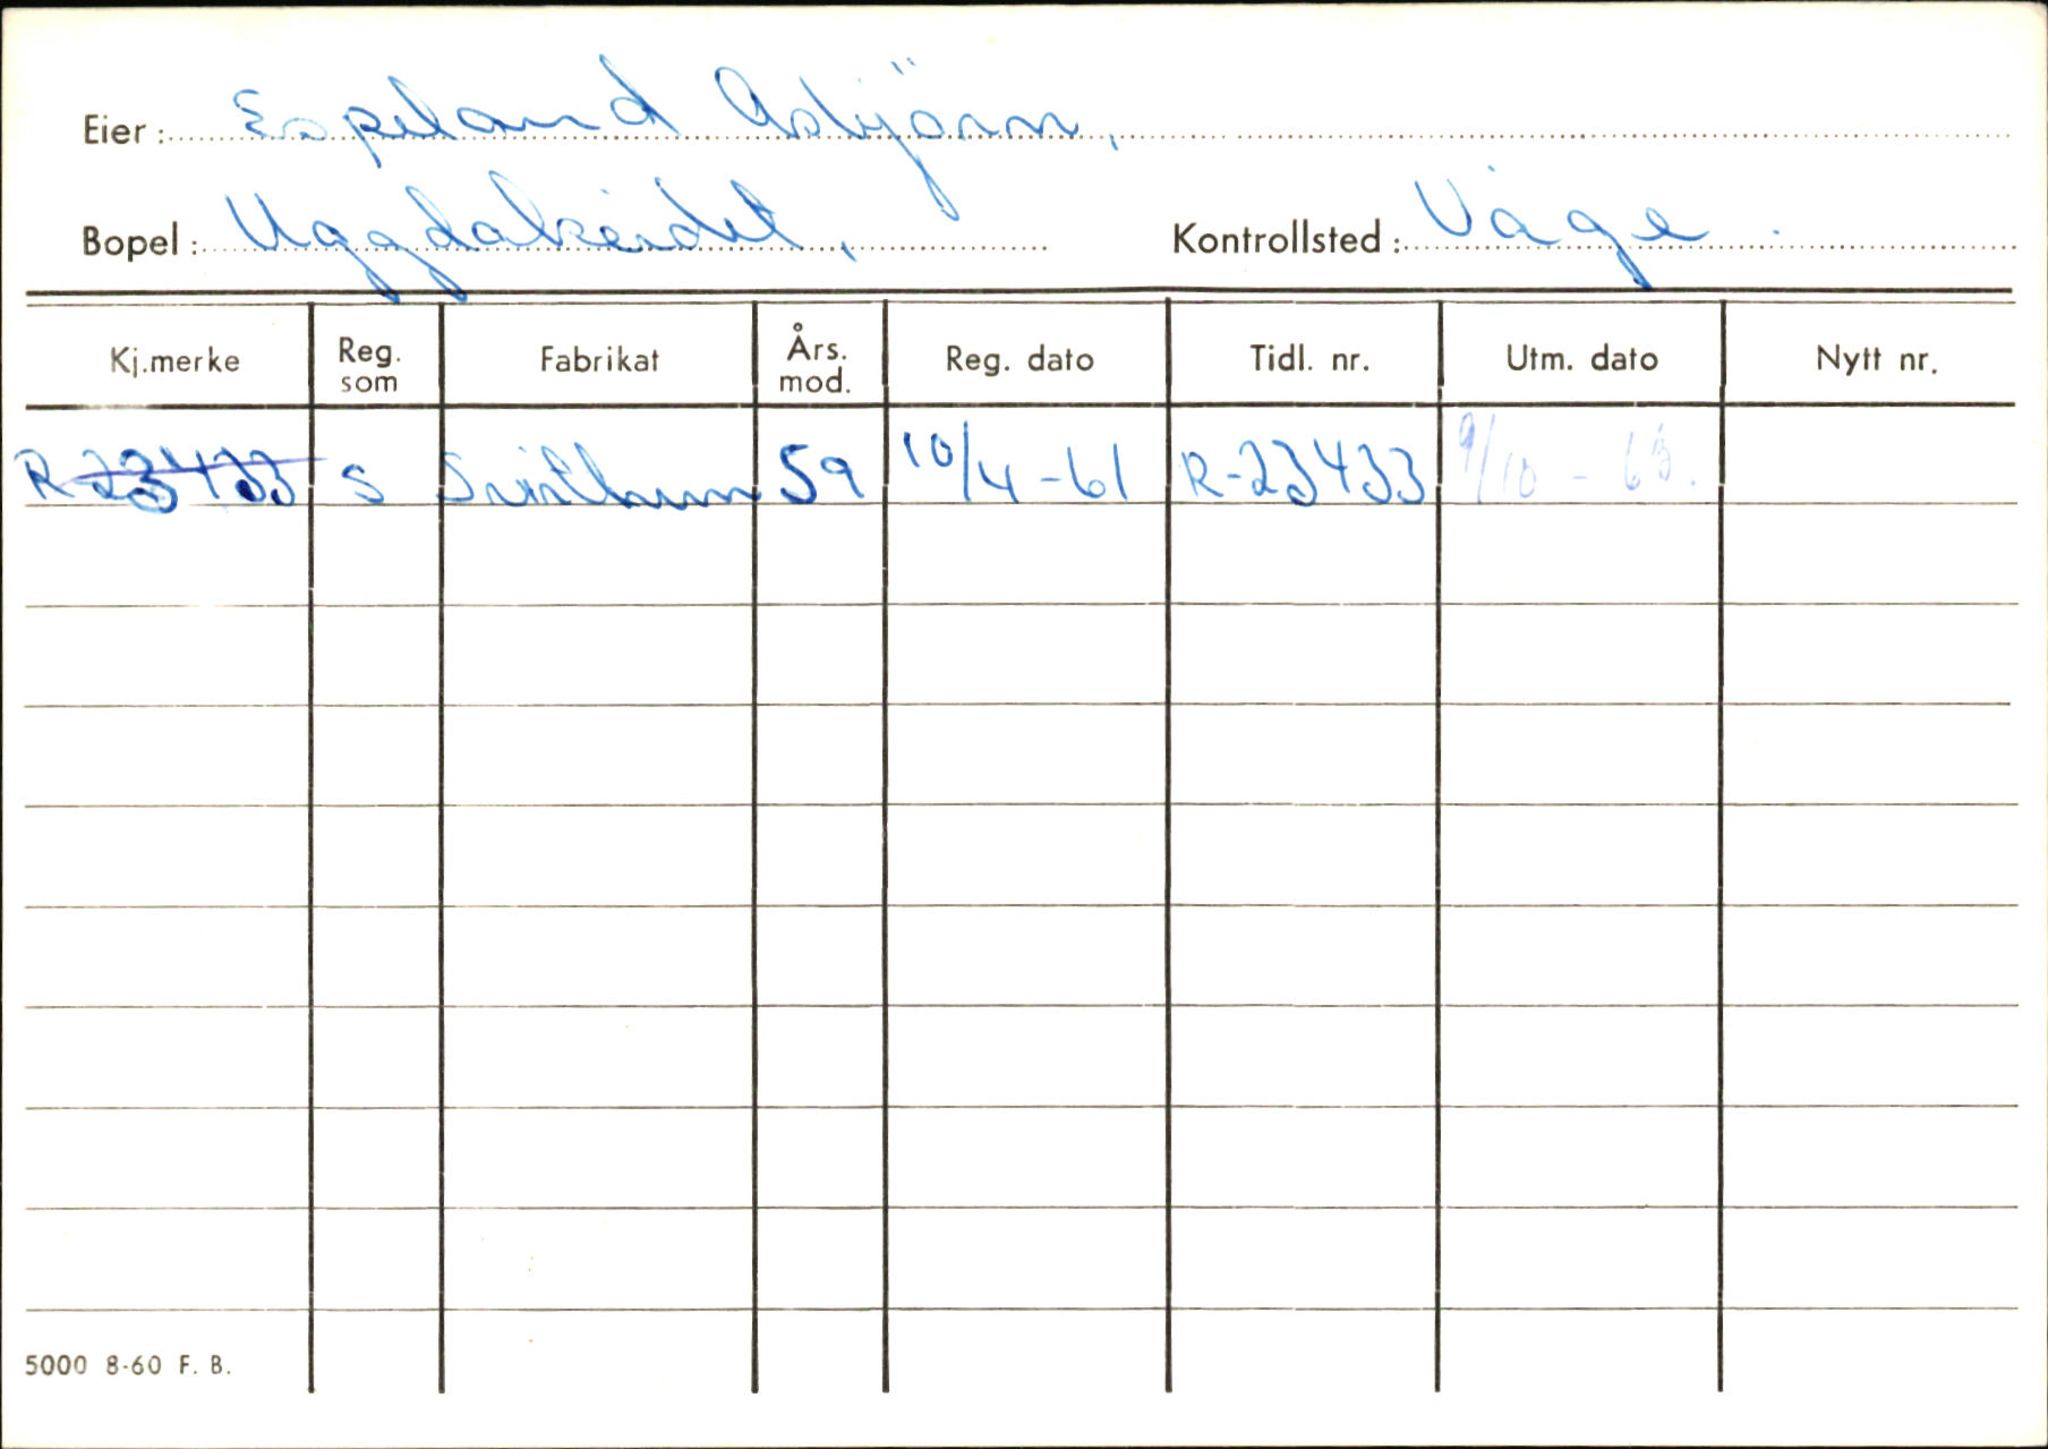 Eier: Espeland Asbjörn,
Bopel: Uggdalseidet, Kontrollsted: Våge.
Kj.merke Reg. som Fabrikat Års. mod. Reg. dato Tidl. nr. Utm. dato Nytt nr.
R-23433 S 59 10/4-61 R-23433 9/10-
5000 8-60 F. B.